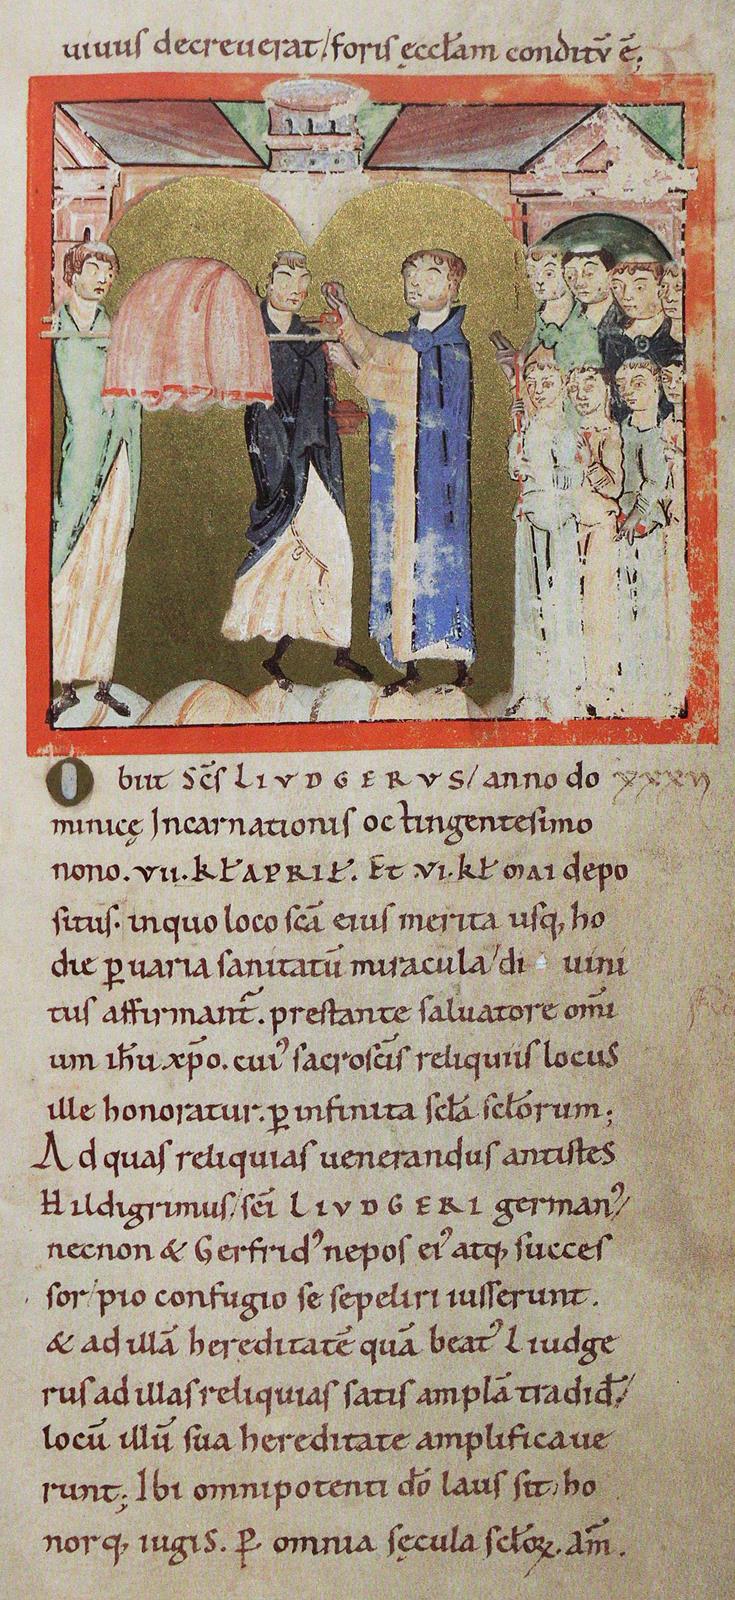 uiuus decreuerat/foris ęccłam conditῡ ē;
Obiit Sc̄s LIVDGERVS/anno do
minicę Incarnationis octingentesimo
nono. vii. kł APRIł. Et vi. kł mai depo
situs. inquo loco sc̄a eius merita usq; ho
die ꝑuaria sanitatū miracula/di uini
tus affirmant̄. prestante saluatore om̄i
um ih̄u xp̄o. cui᾽ sacrosc̄is reliquiis locus
ille honoratur. ꝑ infinita scła scłorum;
Ad quas reliquias uenerandus antistes
Hildigrimus/sc̄i LIVDGERI german᾽/
necnon & Gerfrid᾽ nepos ei᾽ atq; succes
sor/pio confugio se sepeliri iusserunt.
& ad illā hereditatē quā beat᾽ Liudge
rus ad illas reliquias satis amplā tradid̄/
locū illū sua hereditate amplificaue
runt; Ibi omnipotenti d̄o laus sit, ho
norq; iugis. ꝑ omnia sęcula scłoꝝ. am̄.